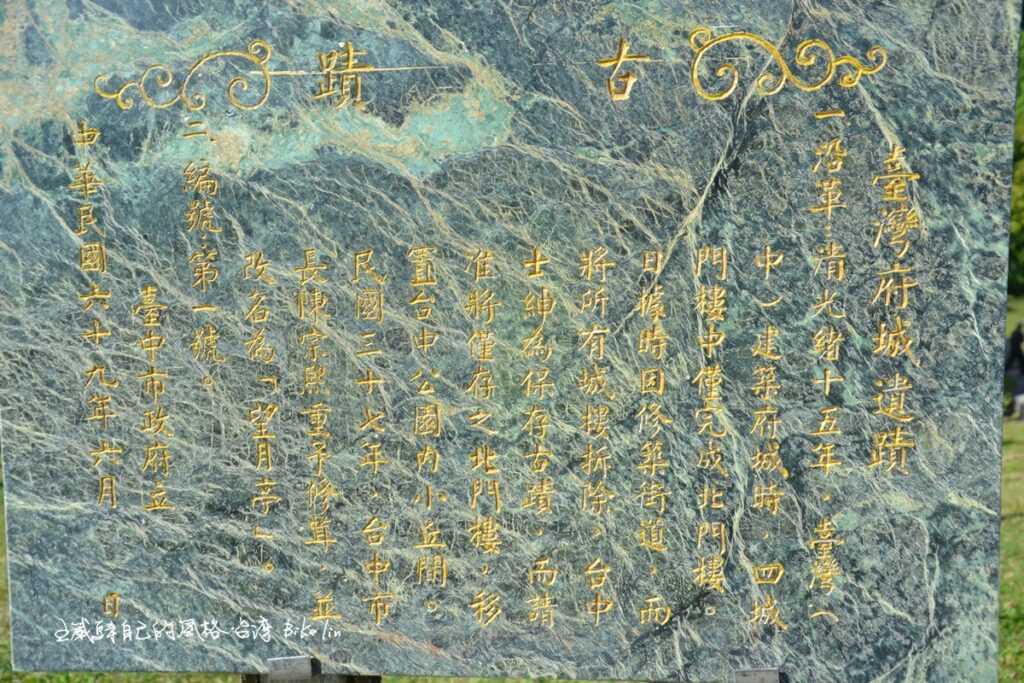 古蹟
臺灣府城遺蹟
一沿革：清光緒十五年，臺灣（
中）建築府城時，四城
門樓中僅完成北門樓。
日據時因修築街道，而
將所有城樓拆除。台中
士紳為保存古蹟，而請
准將僅存之北門樓，移
置台中公園內小丘閒。
民國三十七年，台中市
長陳宗熙重予修葺，並
改名為「望月亭」。
二編號：第一號。
臺中市政府立
中華民國六十九年六月 日
自己的風格 台湾 Biko lin